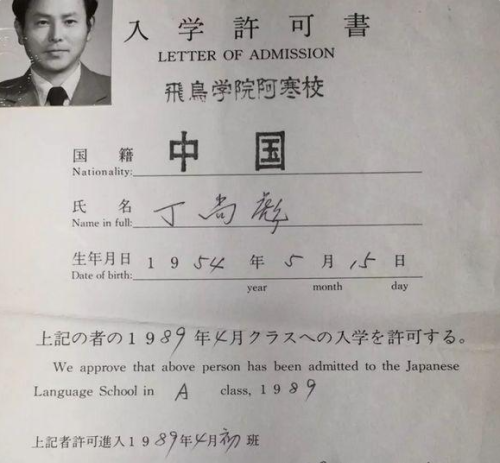 入学許可書
LETTER OF ADMISSION
飛鳥学院阿寒校
国籍 中国
Nationality:
氏名 丁尚彪
Name in full:
生年月日 1954年5月15日
Date of birth: year month day
上記の者の1989年4月クラスへの入学を許可する。
We approve that above person has been admitted to the Japanese
Language School in A class, 1989
上記者許可進入1989年4月初班